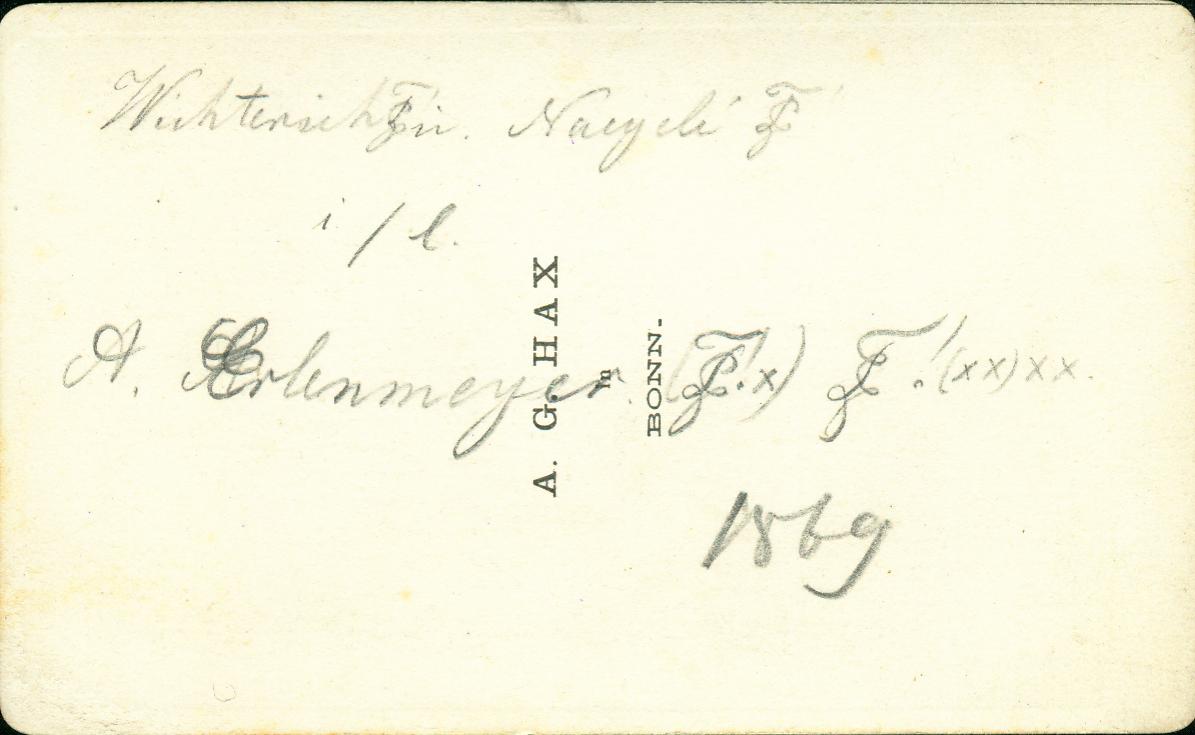 Wichterich Naegeli
i/l.
A. Erlenmeyer. (x) (xx)xx.
1869
A. G. HAX
in
BONN.